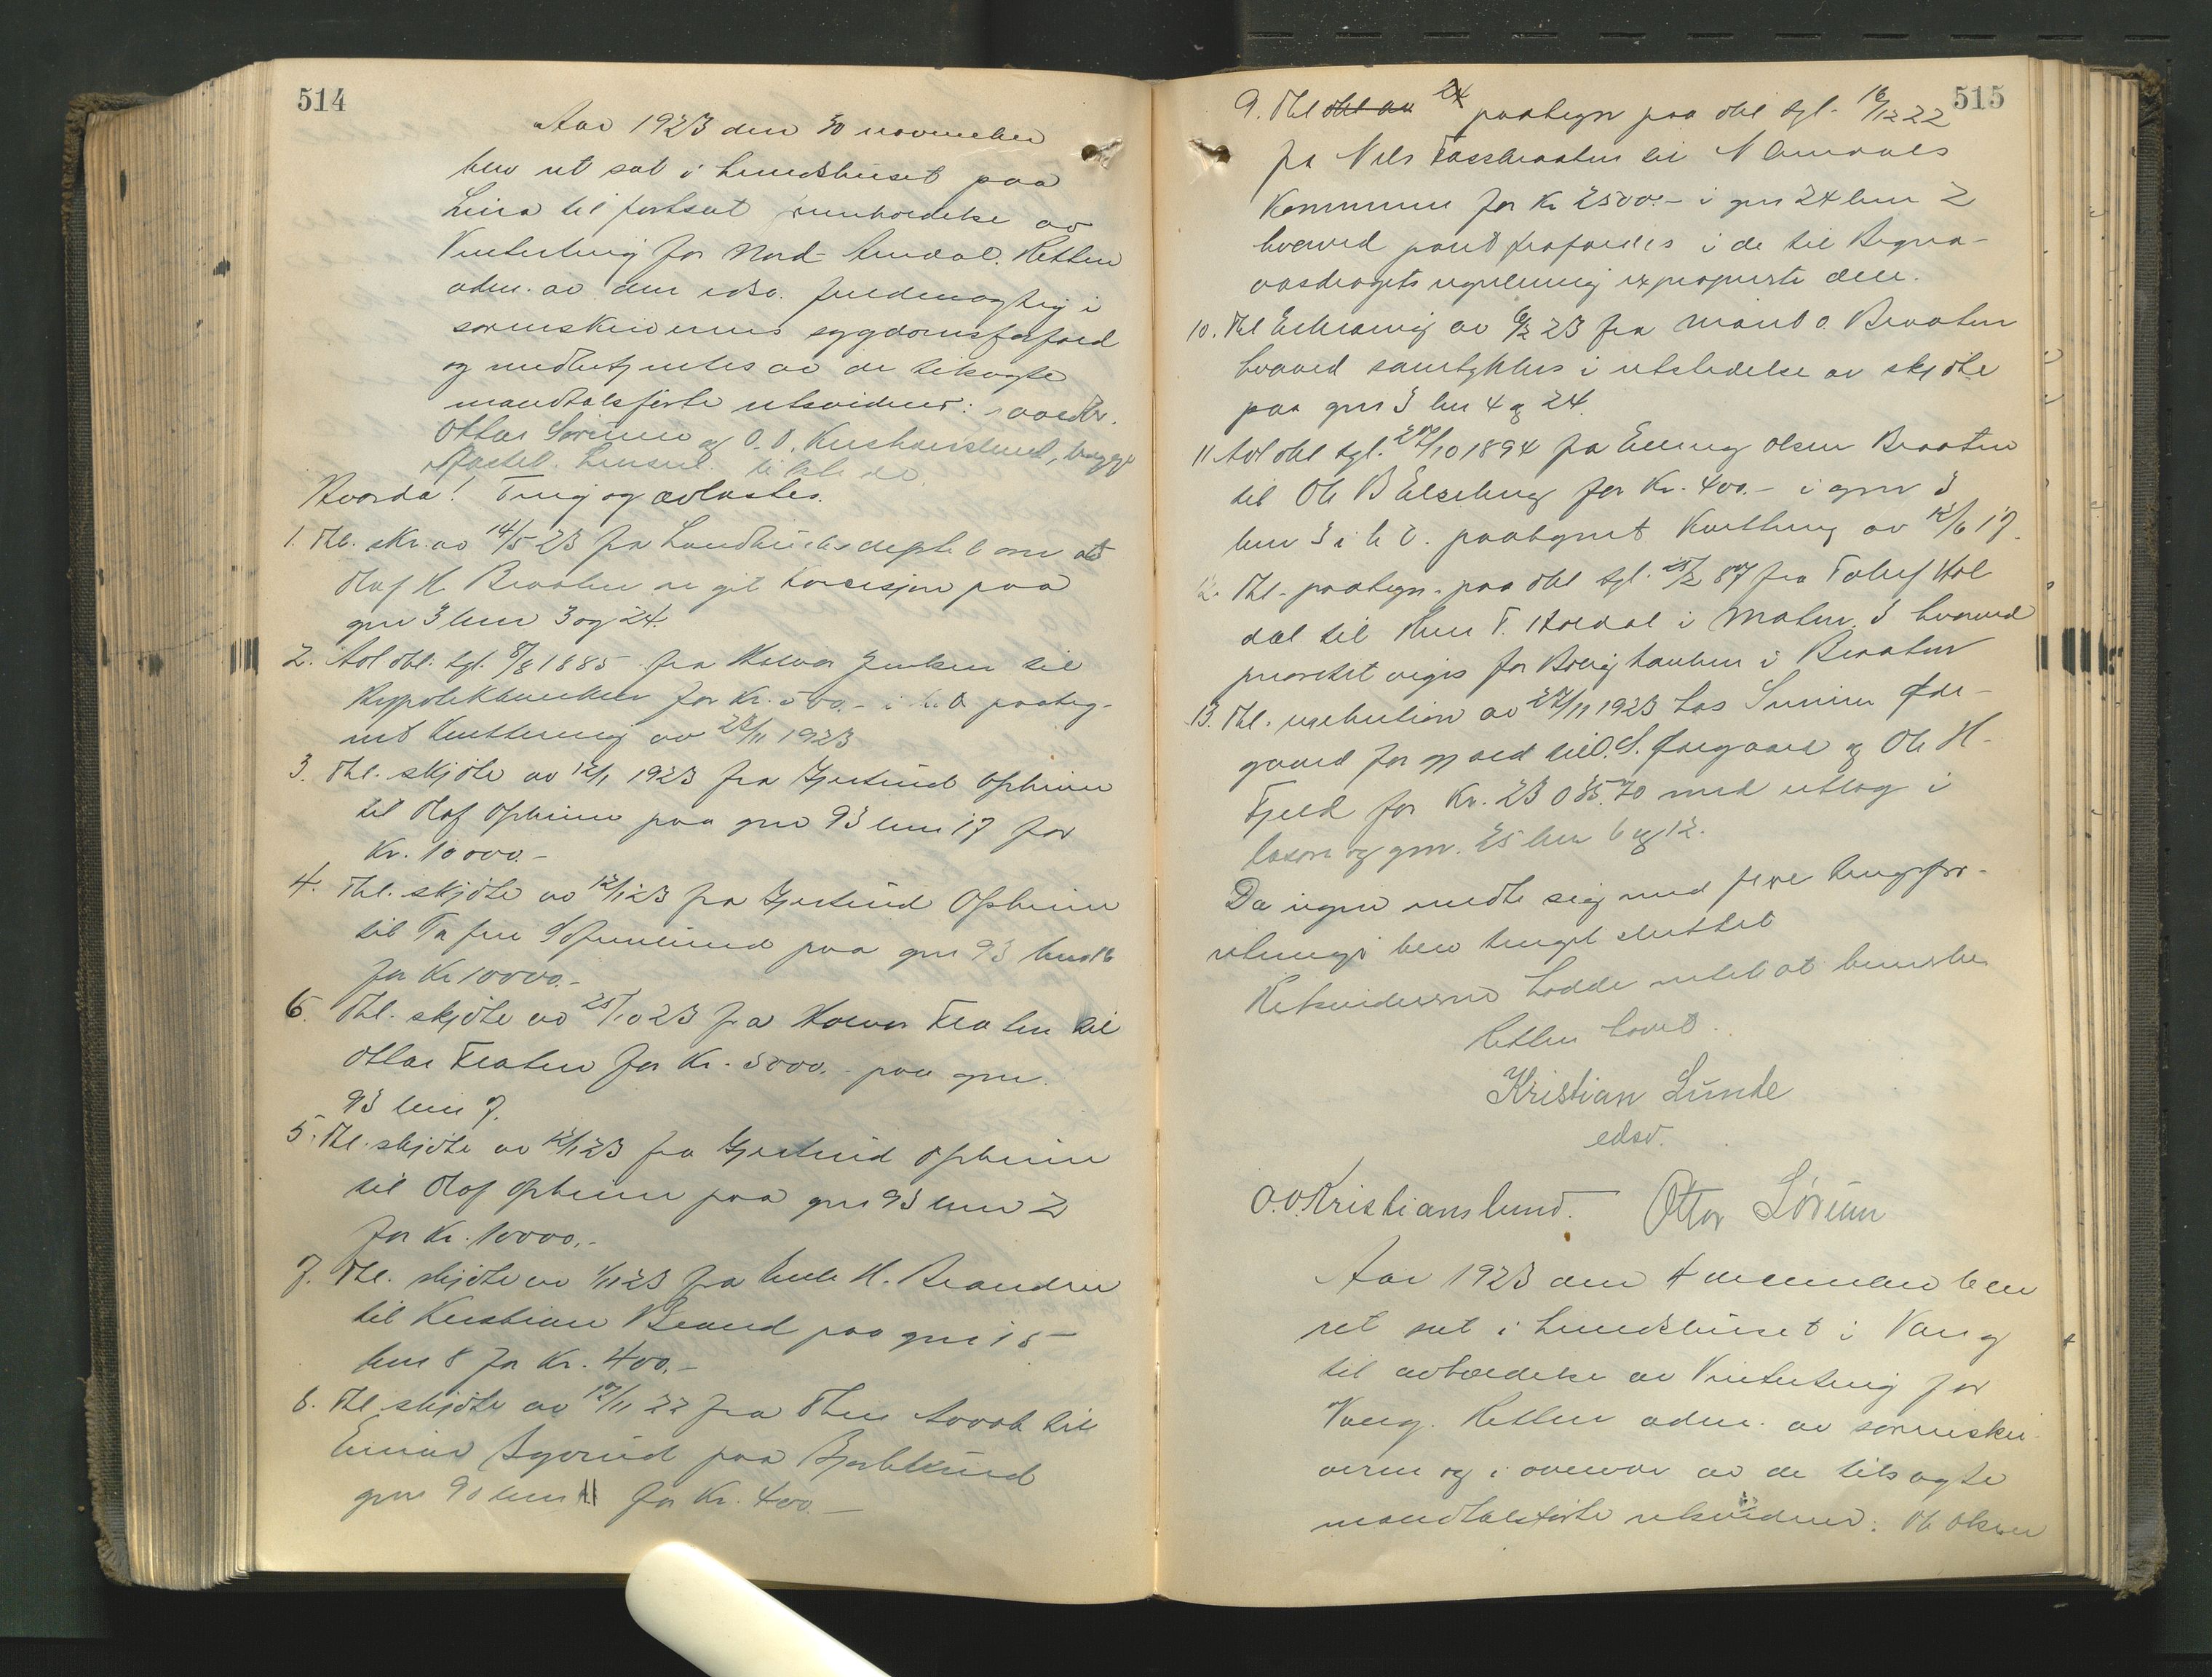 514
Aar 1923 den 30 november
blev ret sat i Lundshuset paa
Leira til fortsat avholdelse av
Vinterting for Nord-Aurdal. Retten
adm. av den edsv. fuldmægtig i
sorenskriverens sygdomsforfald
og medbetjentes av de tilsagte
mandtalsførte retsvidner:
Ottar Sørum og O. O. Kristianslund, begge
Hvorda! Ting og avlastes.
1. Thl. skr. av 14/5 23 fra Landbruksdeptet om at
Olaf H. Braaten er git konsesjon paa
gnr 3 bnr 3 og 24.
2. Avl obl. tgl. 8/8 1885 fra Halvor Jensen til
Hypotekbanken for Kr. 500.- i h. o. paateg-
net kvittering av 23/11 1923
3. Thl. skjøte av 12/1 1923 fra Gjertrud Opheim
til Olaf Opheim paa gnr 93 bnr 17 for
Kr. 10000.-
4. Thl. skjøte av 12/1 23 fra Gjertrud Opheim
til paa gnr 93 bnr 16
for Kr 10000.-
6. Thl. skjøte av 25/10 23 fra Halvor Fladen til
Ottar Fladen for Kr. 3000.- paa gnr.
93 bnr 7.
5. Thl. skjøte av 12/1 23 fra Gjertrud Opheim
til Olaf Opheim paa gnr 93 bnr 2
for Kr. 10000.-
7. Thl. skjøte av 1/11 23 fra H.
til Kristian Brand paa gnr 15
bnr 8 for Kr. 400.-
8. Thl skjøte av 17/11 22 fra til
Einar paa
gnr 90 bnr 11 for Kr. 400.-
515
9. Thl obl av paategn paa obl tgl. 16/12 22
fra Nils til N Aurdals
Kommune for Kr 2500.- i gnr 24 bnr 2
hvorved pant frafaldes i de til Begna-
vasdragets regulering exproprierte dele.
10. Thl Erklæring av 6/2 23 fra Marit O. Braaten
hvorved samtykkes i utstedelse av skjøte
paa gnr 3 bnr 4 og 24.
11 Avl obl tgl. 27/10 1894 fra Elling Olsen Braaten
til Ole B for Kr. 400.- i gnr 3
bnr 3 i h. o. paategnet kvittering av 12/6 17.
12. Thl. paategn. paa obl tgl. 25/2 87 fra Tolleif Hol
dal til Knu T. Holdal i Matnr. 3 hvorved
prioritet viges for Boligbanken i Braaten
13. Thl. exekution av 27/11 1923 hos Øde-
gaard for gjæld til O. S. Ødegaard og Ole H.
Fjeld for Kr. 23 035.70 med utlæg i
løsøre og gnr. 25 bnr 6 og 12.
Da ingen meldte sig med flere tingsfor-
retninger blev tinget sluttet
Retsvidnerne hadde intet at bemerke
Retten hævet.
Kristian Lunde
edsv.
O.O. Kristianslund. Ottar Sørum
Aar 1923 den 4 december blev
ret sat i Lundshuset i Vang
til avholdelse av Vinterting for
Vang. Retten adm. av sorenskri-
veren og i overvær av de tilsagte
mandtalsførte retsvidner: Ole Olsen